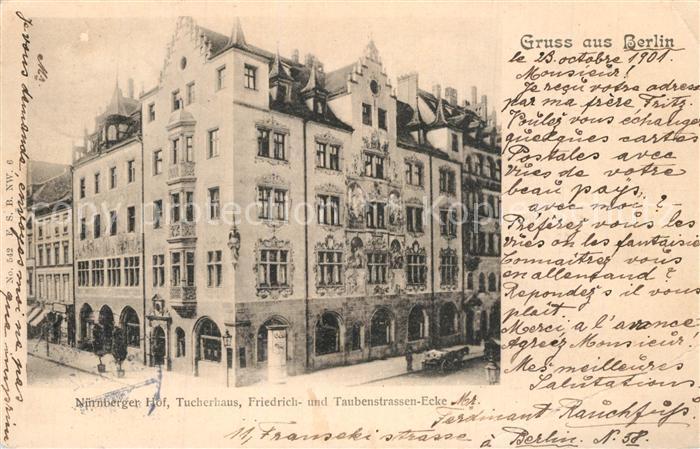 Gruss aus Berlin
le 23. octobre 1901.
Monsieur!
Je reçu votre adresse
par ma frère Fritz.
Voulez vous echanger
quelques cartes
Postales avec
vues de votre
beau pays,
avec moi?
Préferez vous les
vues ou les fantaisie
Connaitrez vous
en allemand?
Repondez s'il vous
plait
Merci, a l'avance
Agreez Monsieur!
Mes meilleures
Salutations
Mr.
Ferdinant Rauchfuß.
11, Franseki strasse à Berlin. N. 58.
Nürnberger Hof, Tucherhaus, Friedrich- und Taubenstrassen-Ecke
No. 542 J. S. B. NW. 6
Mr.
Je vous demande, envoyez moi ne pas